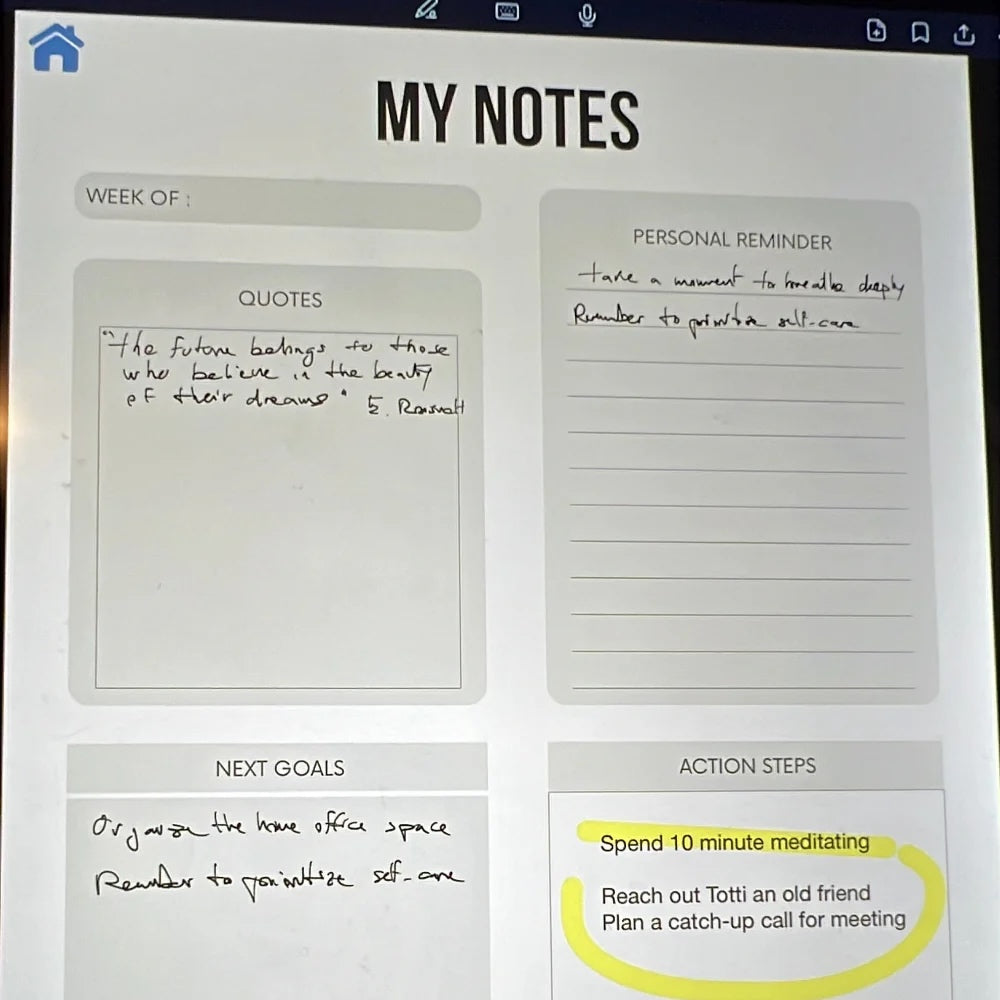 MY NOTES
WEEK OF :
QUOTES
"the future belongs to those
who believe in the beauty
of their dreams" E.
PERSONAL REMINDER
take a moment to breathe deeply
Remember to prioritize self-care
NEXT GOALS
Organize the home office space
Remember to prioritize self-care
ACTION STEPS
Spend 10 minute meditating
Reach out Totti an old friend
Plan a catch-up call for meeting